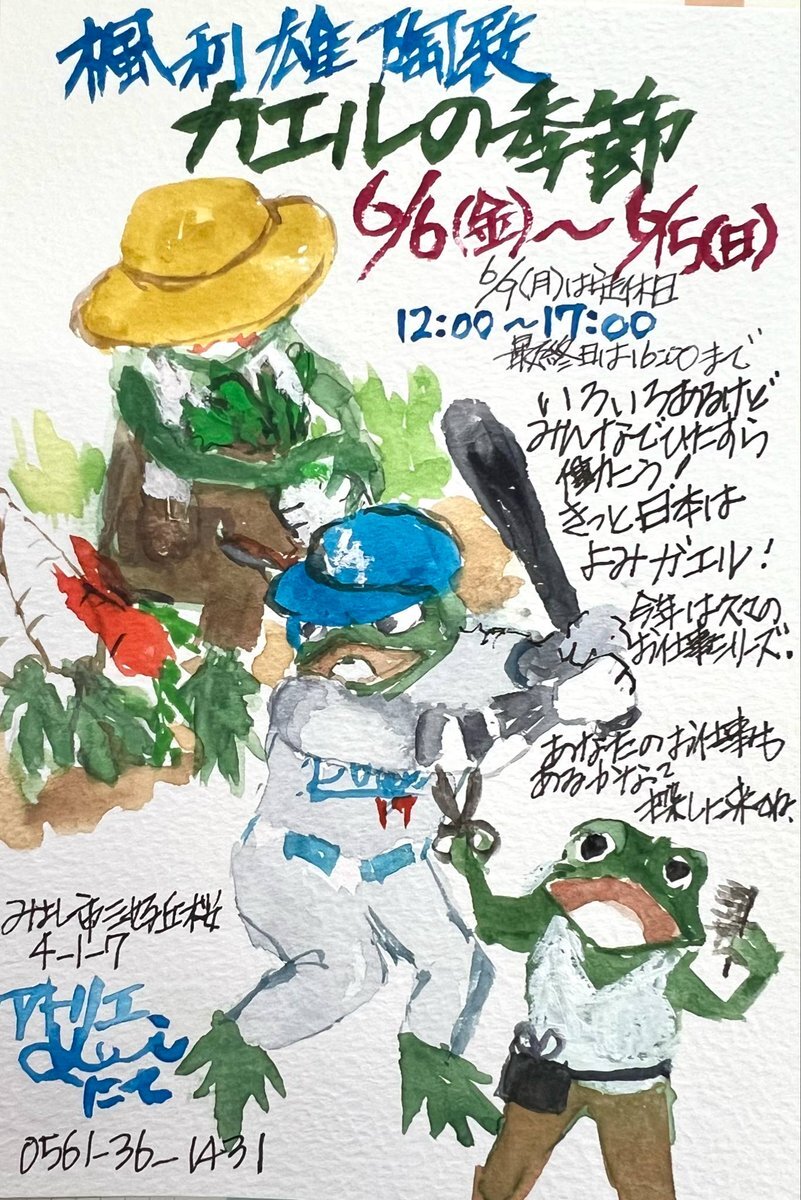 楓利雄陶展
カエルの季節
6/6(金)〜6/15(日)
6/9(月)は定休日
12:00〜17:00
最終日は16:00まで
いろいろあるけど
みんなでひたすら
働こう!
きっと日本は
よみガエル!
今年は久々の
お仕事シリーズ。
あなたのお仕事も
あるかな?
探しに来てね、
4
17
みよし市三好丘桜
4-1-7
アトリエ
にて
0561-36-1431